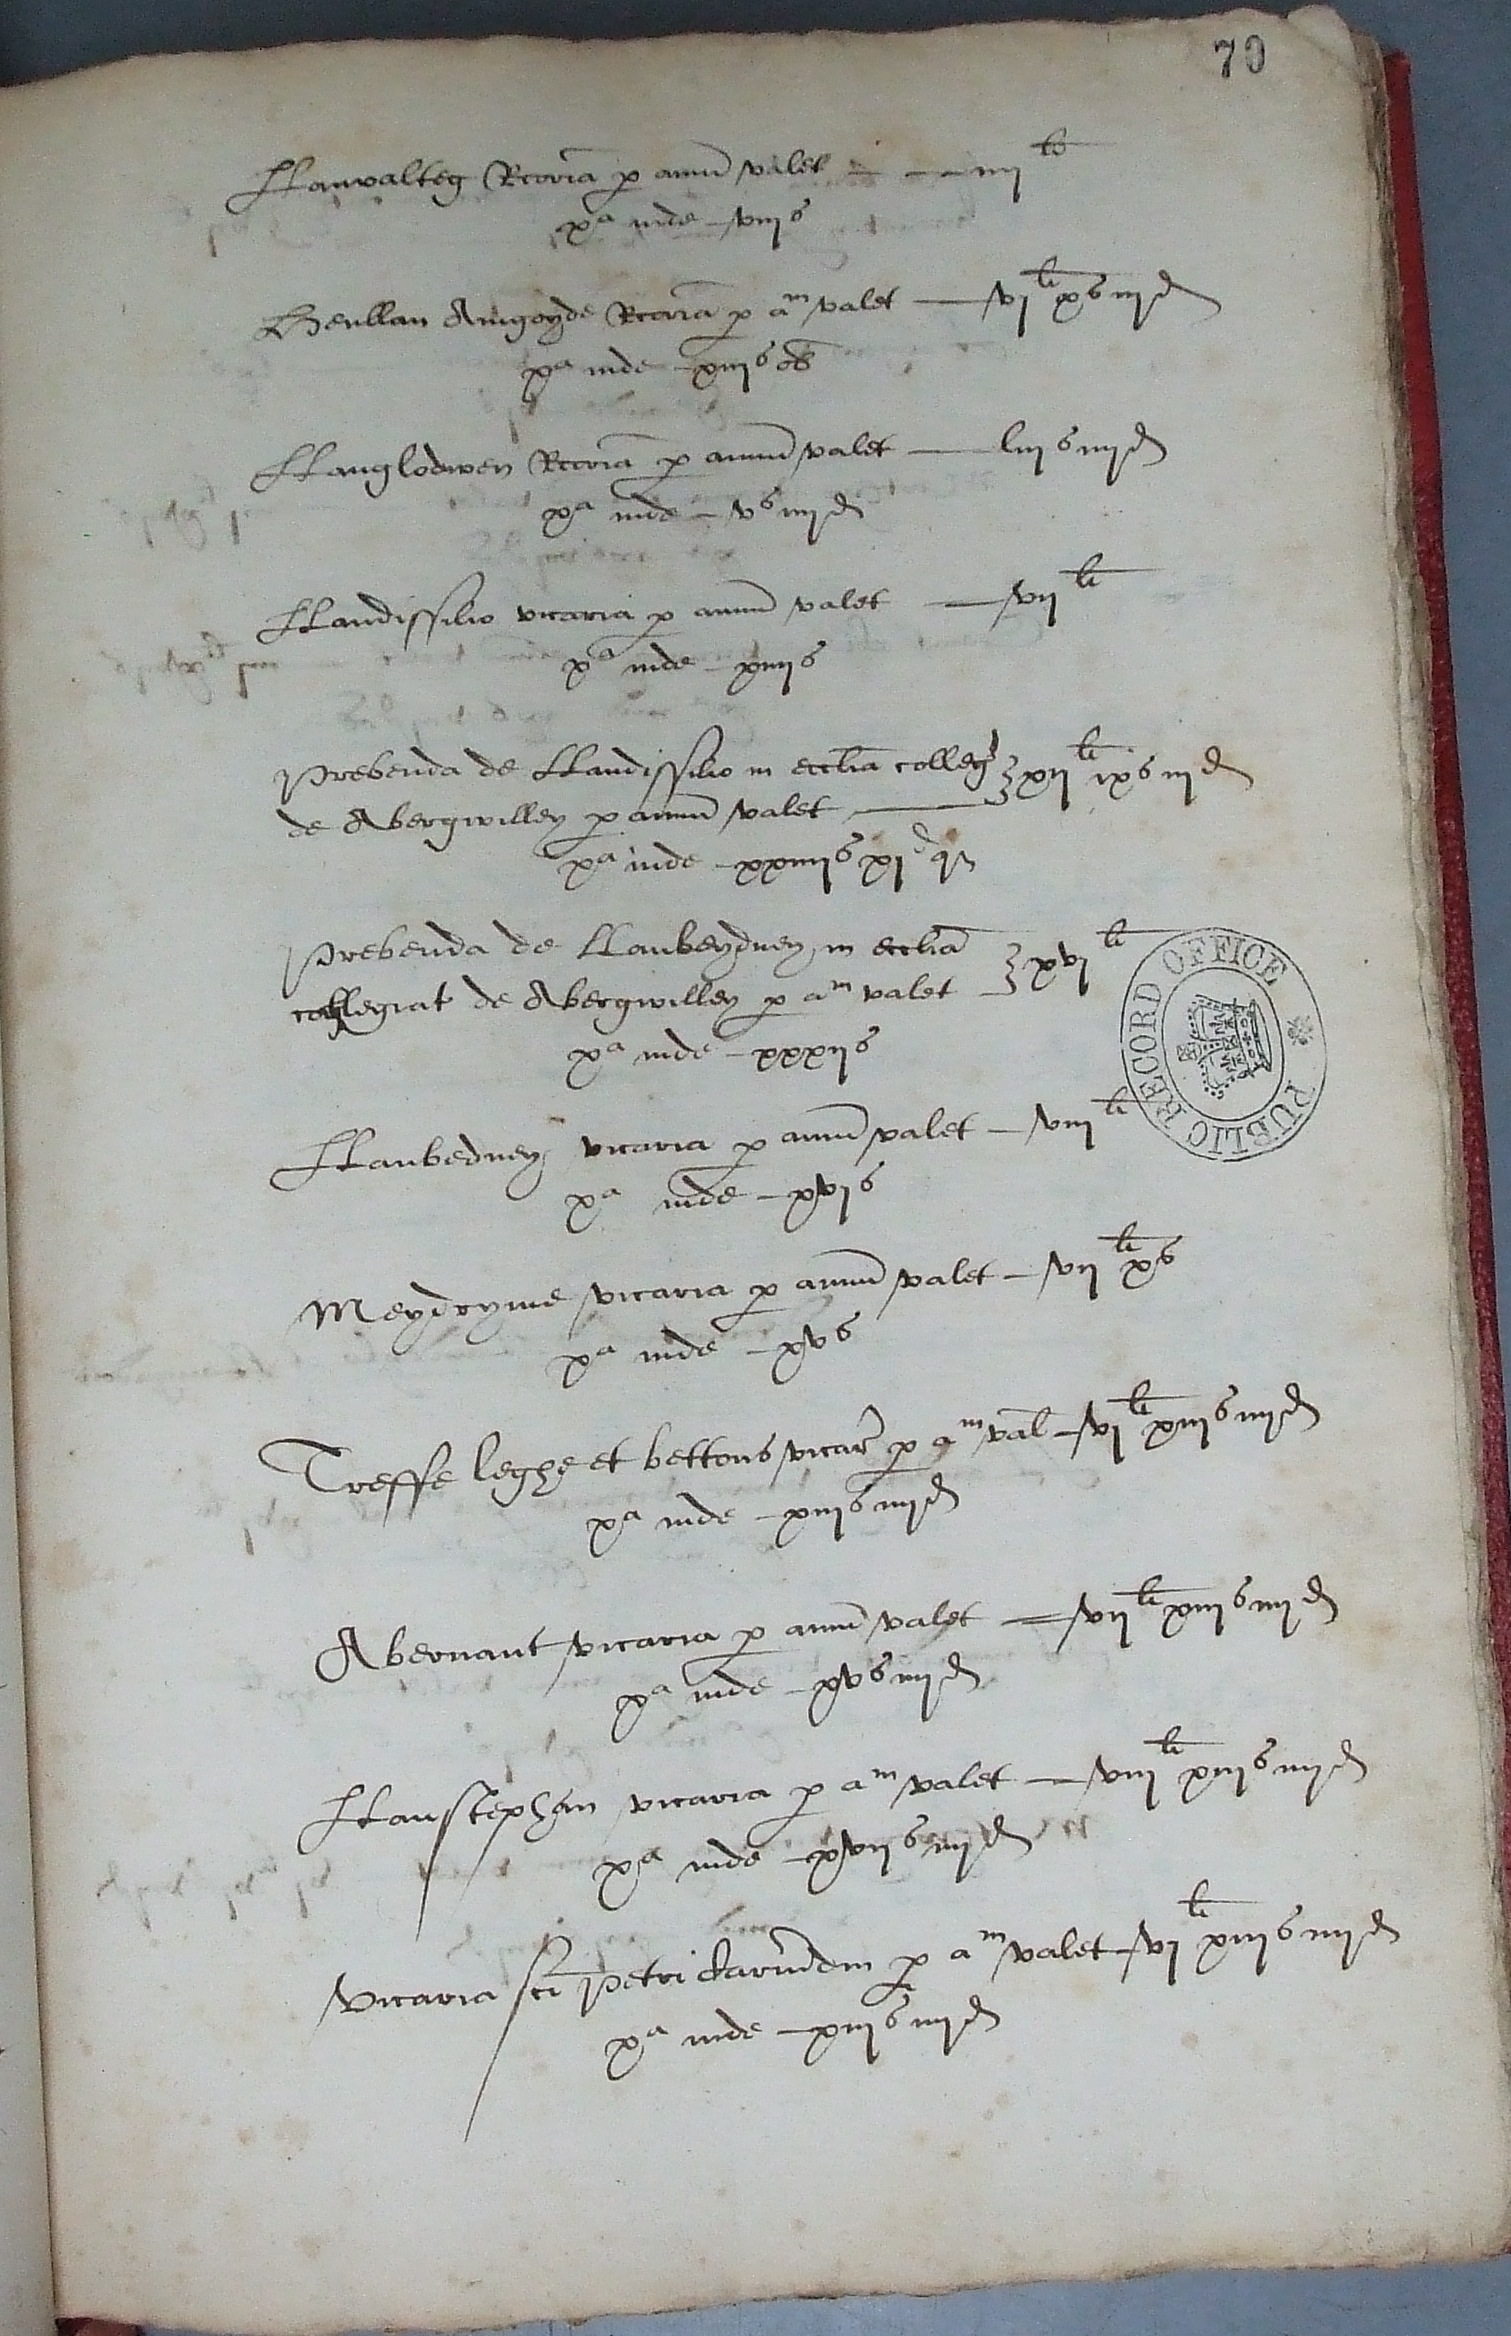 70
llanvalteg Rcoria p annu valet — iiij li
xa inde — viij s
Henllan Amgoyde Rcoria p am valet — vj li x s iiij d
xa inde — xiij s ob
llanglodwen Rcoria p annu valet — liij s iiij d
xa inde — v s iiij d
llandissilio vicaria p annu valet — vij li
xa inde — xiiij s
Prebenda de llandissilio in ecclia colleg
de Abergwilley p annu valet — xij li ix s iij d
xa inde — xxiiij s xj d q
Prebenda de llanbeydney in ecclia
collegiat de Abergwilley p am valet — xvj li
xa inde — xxxij s
llanbedney vicaria p annu valet — viij li
xa inde — xvj s
Meydryme vicaria p annu valet — vij li x s
xa inde — xv s
Treffe leghe et bettons vicar p am val — vj li xiij s iiij d
xa inde — xiij s iiij d
Abernant vicaria p annu valet — vij li xiij s iiij d
xa inde — xv s iiij d
llanstephin vicaria p am valet — viij li xiij s iiij d
xa inde — xvij s iiij d
Vicaria sci Petri p am valet — vj li xiij s iiij d
xa inde — xiij s iiij d
PUBLIC RECORD OFFICE